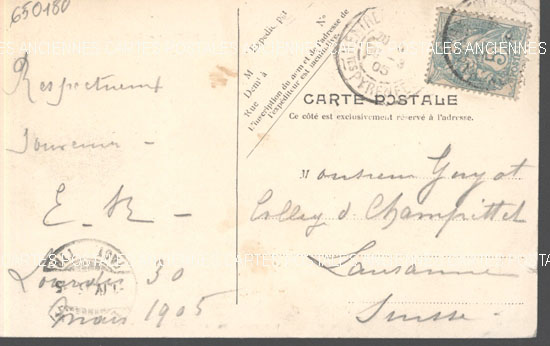 650180
Respectueux
Souvenir -
E. R -
30
Mars 1905
Expédié par
M
Demt à
Rue
No
L'inscription du nom et de l'adresse de
l'expéditeur est facultative.
CARTE POSTALE
Ce côté est exclusivement réservé à l'adresse.
Monsieur Guyot
d. Champittet
Lausanne
Suisse -
05
PYRÉNÉES
5
CARTES POSTALES ANCIENNES